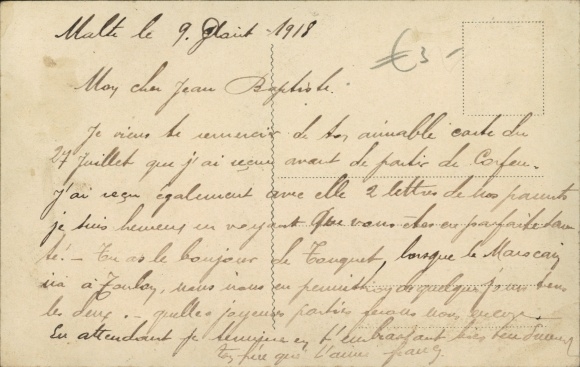 Malte le 9. Août - 1918
€3 -
Mon cher Jean Baptiste.
Je viens te remercier de ton aimable carte du
27 Juillet que j'ai reçue avant de partir de Corfou.
J'ai reçu également avec elle 2 lettres de nos parents
je suis heureux en voyant que vous êtes en parfaite san-
té. - Tu as le bonjour de Touquet, lorsque le
ira à Toulon, nous nous en quelques jours tous
les deux. - quelles joyeuses parties nous
En attendant je termine en t'embrassant bien
ton frère qui t'aime